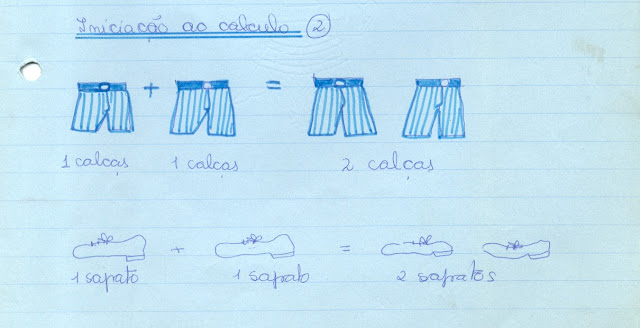 Iniciação ao calculo 2
+ =
1 calcas 1 calcas 2 calças
+ =
1 sapato 1 sapato 2 sapatos